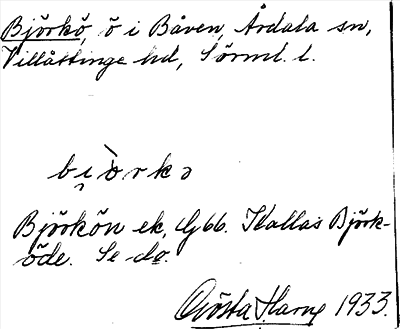 Björkö, ö i Båven, Årdala sn,
Villåttinge hd, Sörml. l.
bi̯òrkə
Björkön ek. Gbb. Kallas Björk-
öde. Se do.
Gösta Harne 1933.